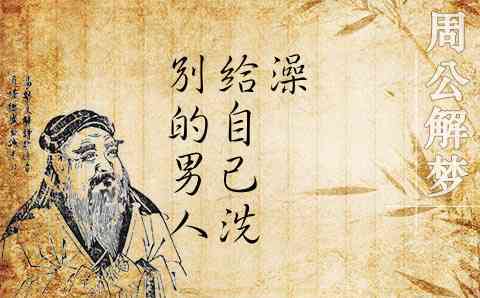 别的男人
给自己洗
澡
周公解梦